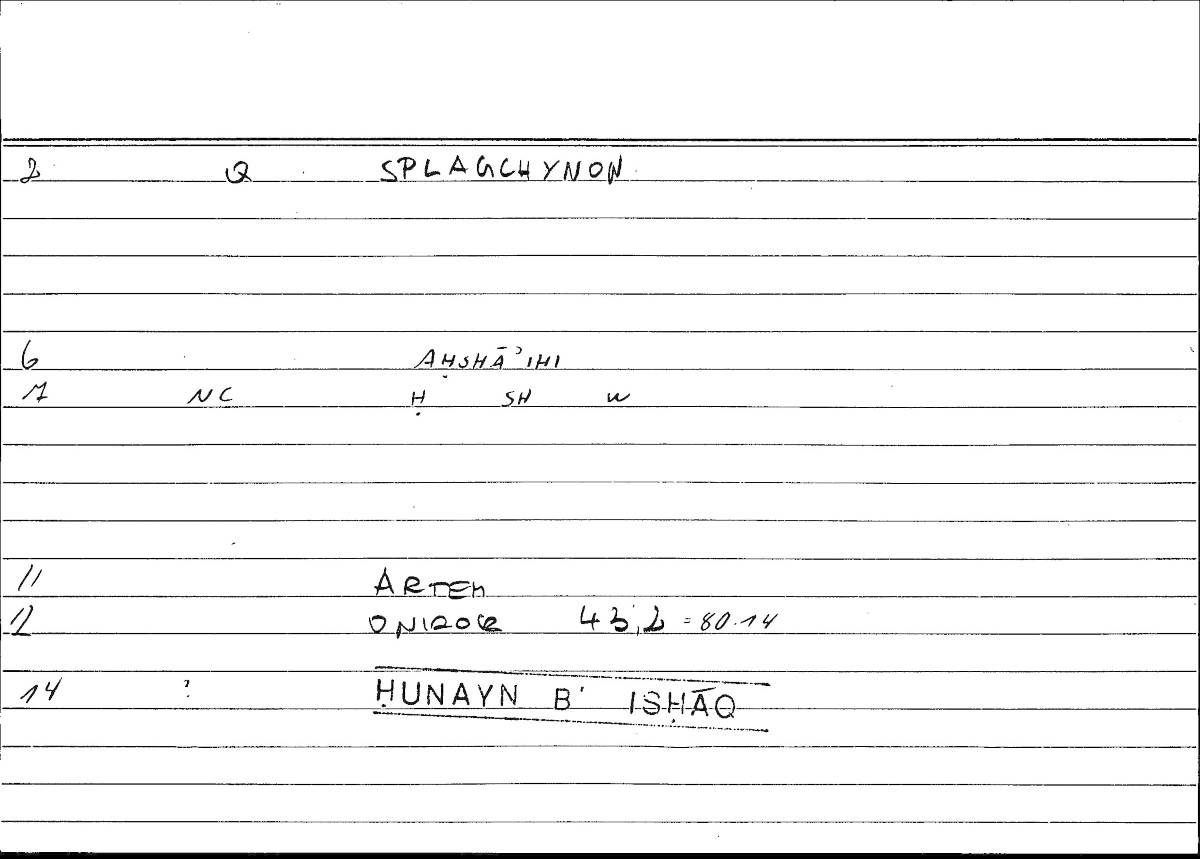 2 Q SPLAGCHYNON
6 AḤSHĀʾIHI
7 NC Ḥ SH W
11 ARTEM
12 ONIROCR 43,2 = 80.14
14 ? ḤUNAYN B' ISḤĀQ